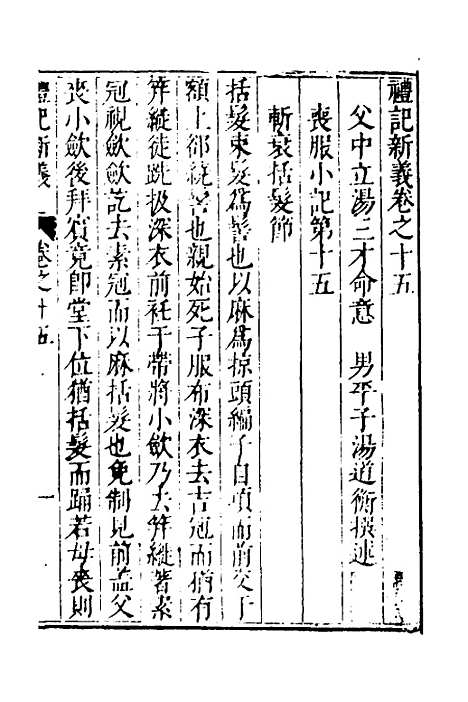 禮記新義卷之十五
父中立湯三才命意　男平子湯道衡撰述
喪服小記第十五
斬衰括髮節
括髮束髮爲髻也以麻爲掠頭編子自項而前交于
額上郤繞髻也親始死子服布深衣去吉冠而猶有
笄縰徒跣扱深衣前衽于帶將小歛乃去笄縰著素
冠視歛歛訖去素冠而以麻括髮也免制見前盖父
喪小歛後拜賓竟即堂下位猶括髮而踊若母喪則
禮記新義　卷之十五　一